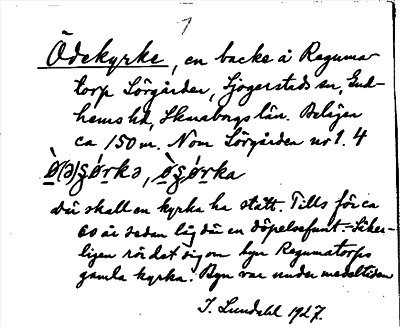 1
Ödekyrke, en backe å Reguma-
torp Sörgården, Sjogerstads sn, Gud-
hems hd, Skaraborgs län. Belägen
ca 150 m. Nom Sörgården nr 1. 4
Där skall en kyrka ha stått. Tills för ca
60 år sedan låg där en döpelsefunt. - Säker-
ligen rör det sig om hyn Regumatorps
gamla kyrka. Byn var under medeltiden
S. Lundahl 1927.